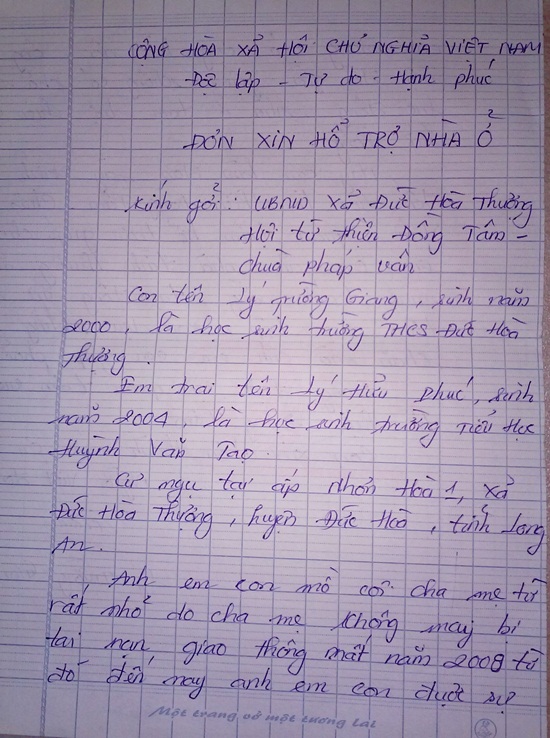 CỘNG HÒA XÃ HỘI CHỦ NGHĨA VIỆT NAM
Độc lập - Tự do - Hạnh phúc
ĐƠN XIN HỔ TRỢ NHÀ Ở
Kính gởi: UBND xã Đức Hoà Thượng
Hội từ thiện Đồng Tâm -
chùa pháp vân
Con tên Lý Trường Giang, sinh năm
2000, là học sinh trường THCS Đức Hoà
Thượng.
Em trai tên Lý Hữu Phúc, sinh
năm 2004, là học sinh trường Tiểu Học
Huỳnh Văn Tạo.
Cư ngụ tại ấp Nhơn Hoà 1, xã
Đức Hòa Thượng, huyện Đức Hoà, tỉnh Long
An.
Anh em con mồ côi cha mẹ từ
rất nhỏ do cha mẹ không may bị
tai nạn giao thông mất năm 2008 từ
đó đến nay anh em con được sự
Một trang vở một tương lai